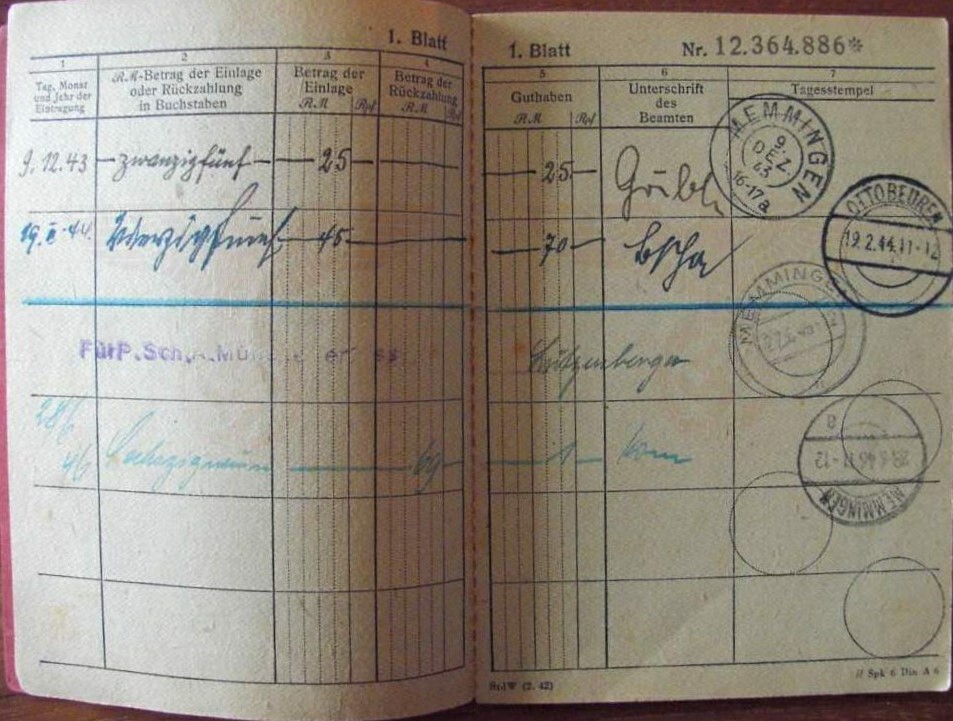 1. Blatt
1 2 3 4
Tag, Monat und Jahr der Eintragung
RM-Betrag der Einlage oder Rückzahlung in Buchstaben
Betrag der Einlage
RM Rpf
Betrag der Rückzahlung
RM Rpf
9.12.43 zwanzigfünf 25
19.II.44. Vierzigfünf 45
FürP.Sch.A.Mün
28/6
46 69
1. Blatt Nr. 12.364.886*
5 6 7
Guthaben
RM Rpf
Unterschrift des Beamten
Tagesstempel
25
MEMMINGEN
9
DEZ
43
16-17a
70
OTTOBEUREN
19.2.44.11-12
MEMMINGEN
1
MEMMINGEN
28.6.46 11-12
a
StdW (2. 42)
// Spk 6 Din A 6